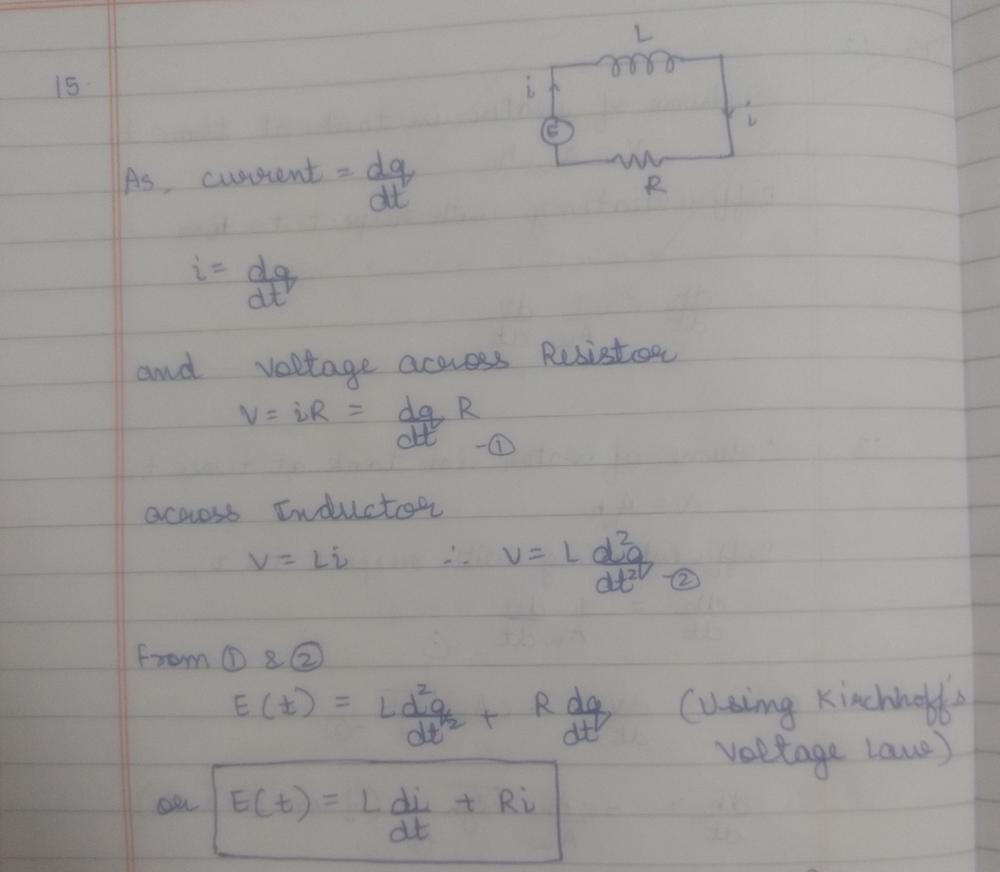 15.
L
i
E
i
R
As, current = dq/dt
i = dq/dt
and voltage across Resistor
V = iR = dq/dt R -①
across Inductor
V = Li ∴ V = L d²q/dt² -②
From ① & ②
E(t) = L d²q/dt² + R dq/dt (Using Kirchhoff's
Voltage Law)
or E(t) = L di/dt + Ri